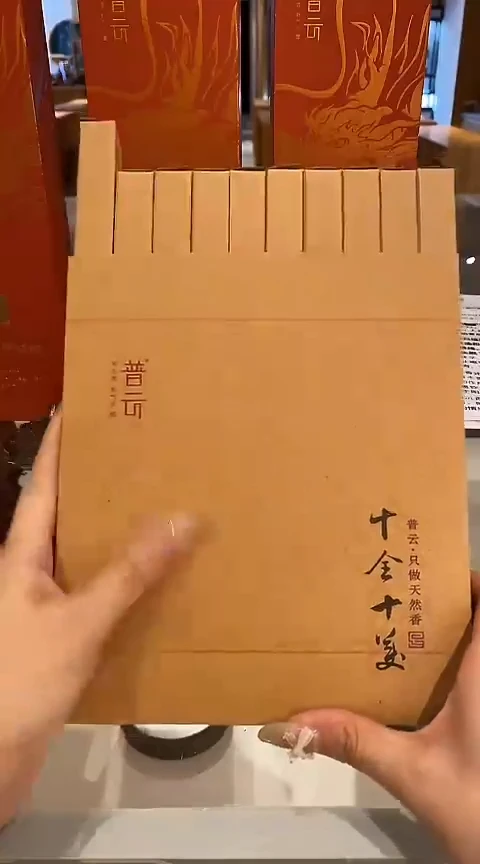 普云
普云
普云
十全十美
普云·只做天然香